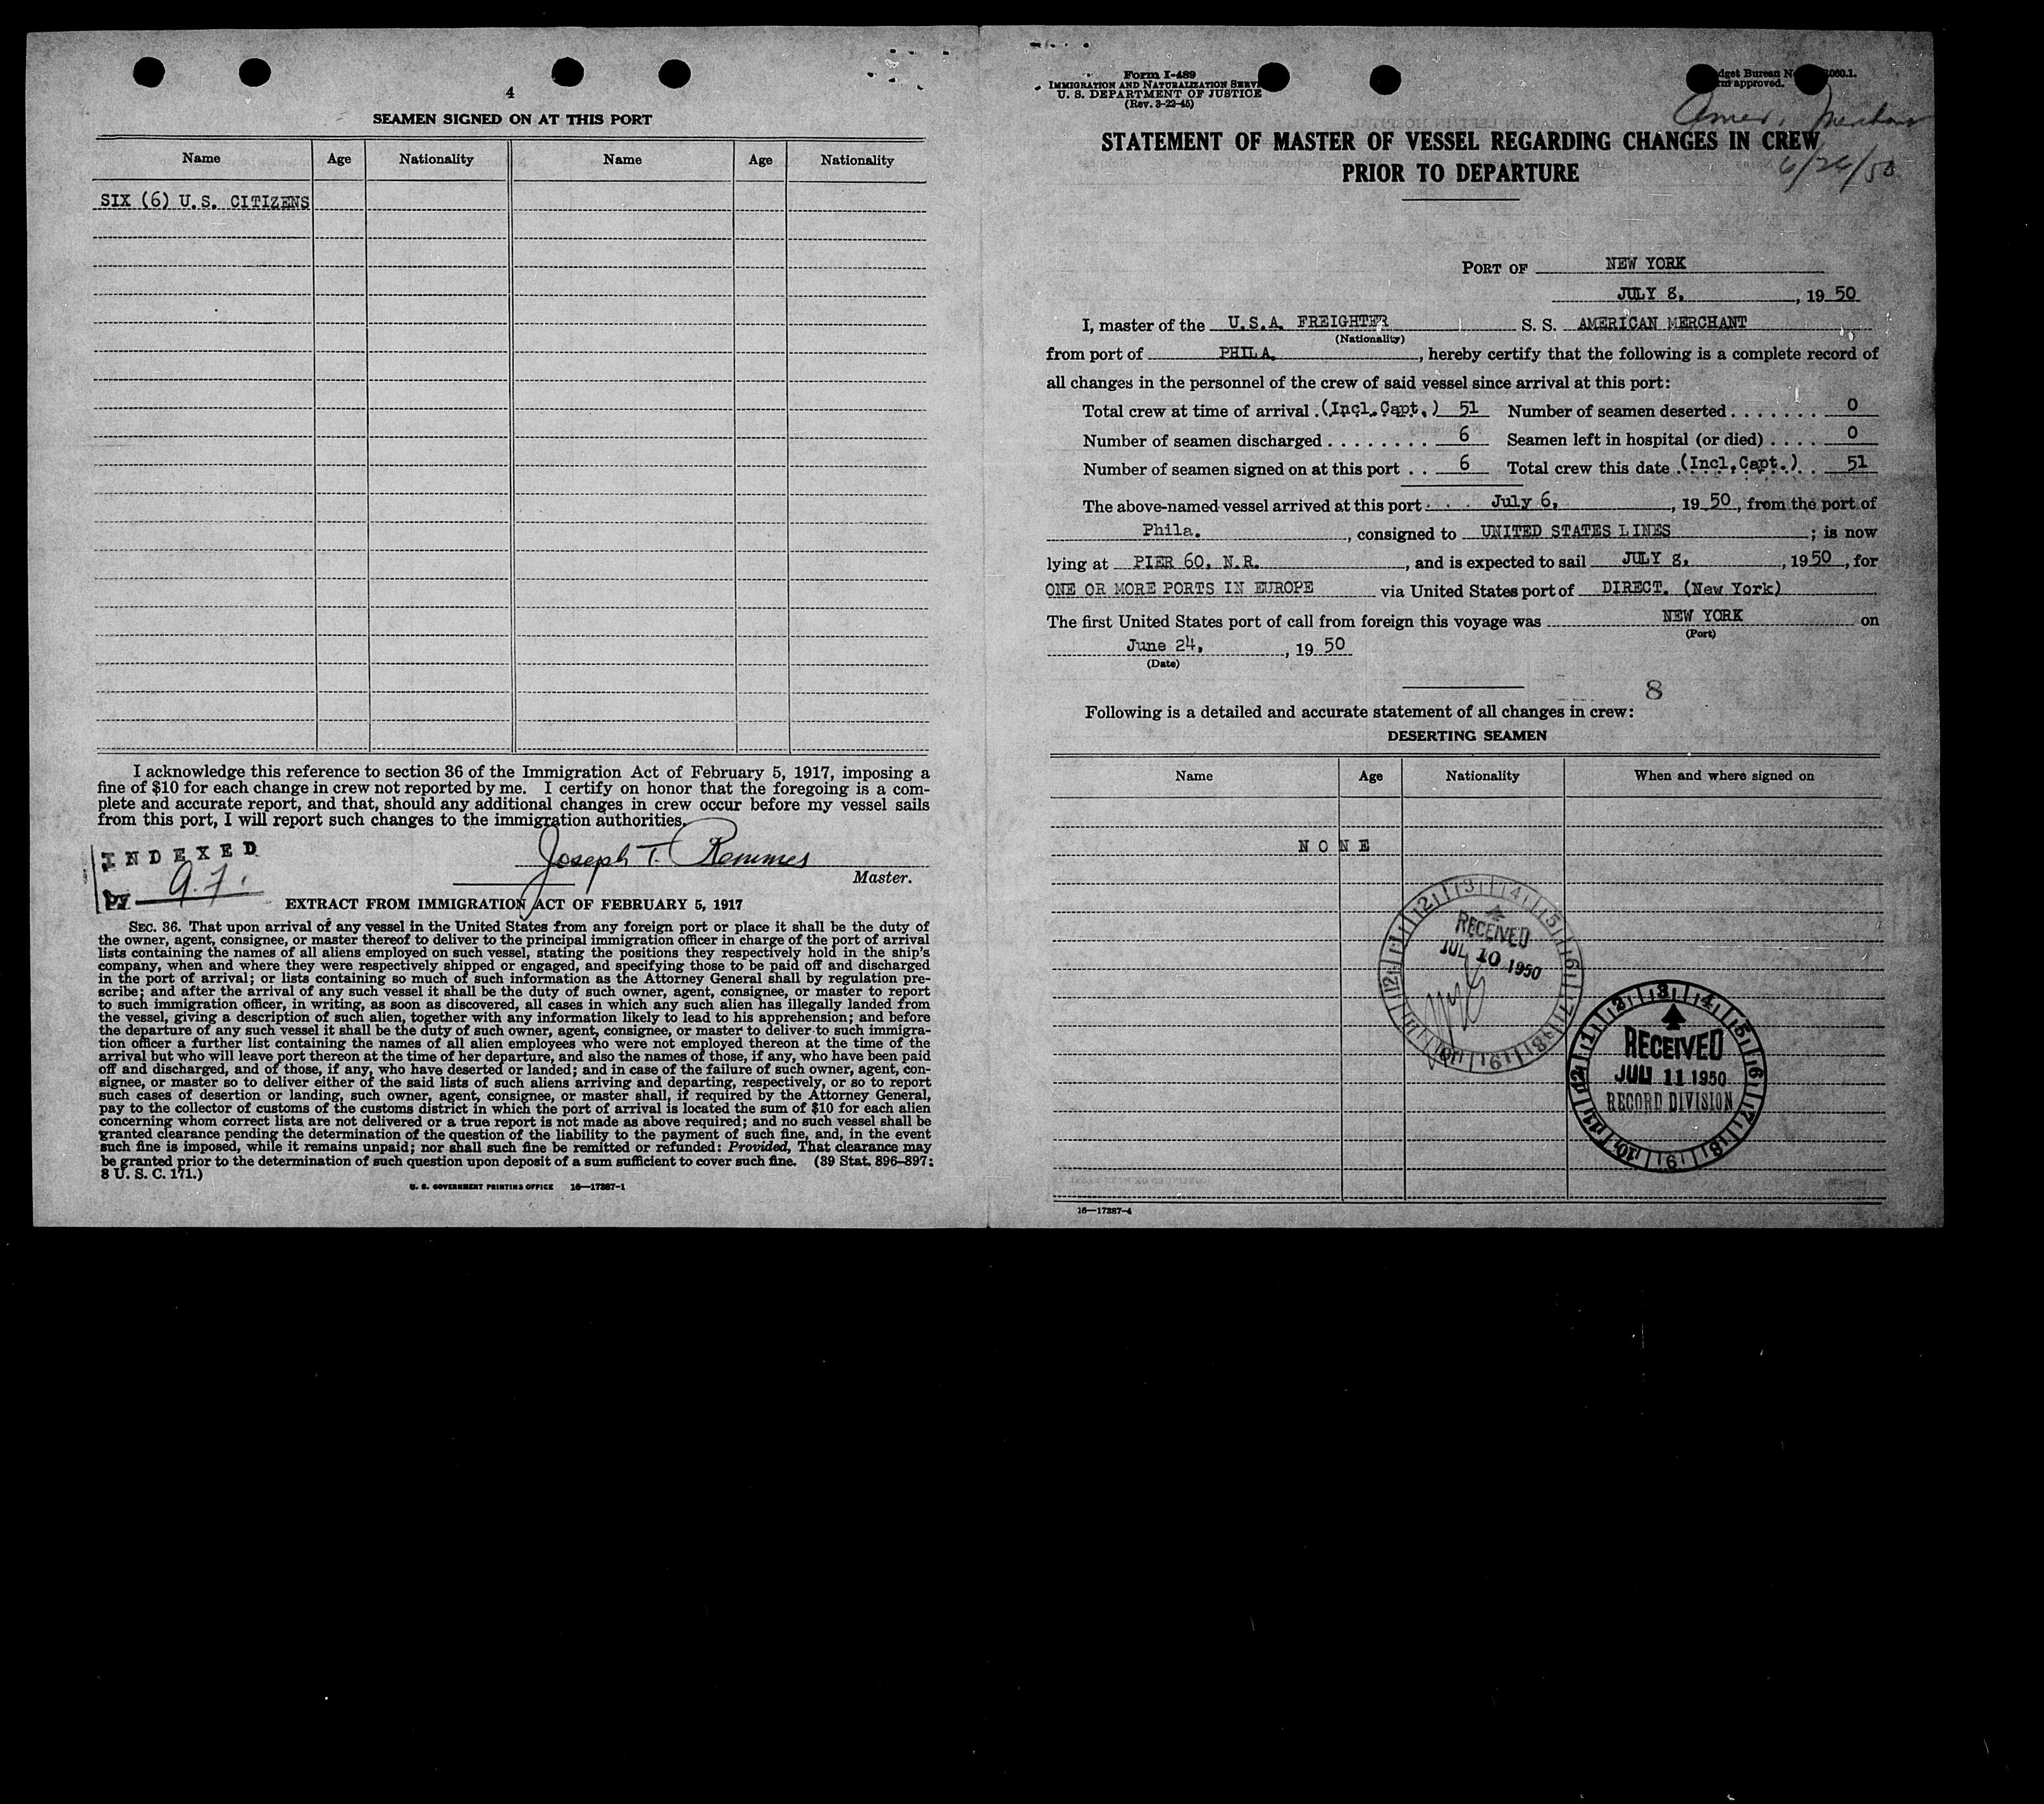 4
SEAMEN SIGNED ON AT THIS PORT
Name Age Nationality Name Age Nationality
SIX (6) U.S. CITIZENS
I acknowledge this reference to section 36 of the Immigration Act of February 5, 1917, imposing a
fine of $10 for each change in crew not reported by me. I certify on honor that the foregoing is a com-
plete and accurate report, and that, should any additional changes in crew occur before my vessel sails
from this port, I will report such changes to the immigration authorities.
INDEXED
by
Joseph T. Remmes
Master.
EXTRACT FROM IMMIGRATION ACT OF FEBRUARY 5, 1917
SEC. 36. That upon arrival of any vessel in the United States from any foreign port or place it shall be the duty of
the owner, agent, consignee, or master thereof to deliver to the principal immigration officer in charge of the port of arrival
lists containing the names of all aliens employed on such vessel, stating the positions they respectively hold in the ship's
company, when and where they were respectively shipped or engaged, and specifying those to be paid off and discharged
in the port of arrival; or lists containing so much of such information as the Attorney General shall by regulation pre-
scribe; and after the arrival of any such vessel it shall be the duty of such owner, agent, consignee, or master to report
to such immigration officer, in writing, as soon as discovered, all cases in which any such alien has illegally landed from
the vessel, giving a description of such alien, together with any information likely to lead to his apprehension; and before
the departure of any such vessel it shall be the duty of such owner, agent, consignee, or master to deliver to such immigra-
tion officer a further list containing the names of all alien employees who were not employed thereon at the time of the
arrival but who will leave port thereon at the time of her departure, and also the names of those, if any, who have been paid
off and discharged, and of those, if any, who have deserted or landed; and in case of the failure of such owner, agent, con-
signee, or master so to deliver either of the said lists of such aliens arriving and departing, respectively, or so to report
such cases of desertion or landing, such owner, agent, consignee, or master shall, if required by the Attorney General,
pay to the collector of customs of the customs district in which the port of arrival is located the sum of $10 for each alien
concerning whom correct lists are not delivered or a true report is not made as above required; and no such vessel shall be
granted clearance pending the determination of the question of the liability to the payment of such fine, and, in the event
such fine is imposed, while it remains unpaid; nor shall such fine be remitted or refunded: Provided, That clearance may
be granted prior to the determination of such question upon deposit of a sum sufficient to cover such fine. (39 Stat. 896-897;
8 U. S. C. 171.)
U. S. GOVERNMENT PRINTING OFFICE 16—17387-1
Form I-489
IMMIGRATION AND NATURALIZATION SERVI
U. S. DEPARTMENT OF JUSTICE
(Rev. 3-22-45)
dget Bureau N 060.1.
rm approved.
Amer. Merchant
6/24/50
STATEMENT OF MASTER OF VESSEL REGARDING CHANGES IN CREW
PRIOR TO DEPARTURE
PORT OF NEW YORK
JULY 8, , 19 50
I, master of the U.S.A. FREIGHTER S. S. AMERICAN MERCHANT
(Nationality)
from port of PHILA. , hereby certify that the following is a complete record of
all changes in the personnel of the crew of said vessel since arrival at this port:
Total crew at time of arrival (Incl. Capt.) 51 Number of seamen deserted . . . . . . . 0
Number of seamen discharged . . . . . . . . 6 Seamen left in hospital (or died) . . . . 0
Number of seamen signed on at this port . . 6 Total crew this date (Incl. Capt.) . 51
The above-named vessel arrived at this port . . . July 6, , 19 50, from the port of
Phila. , consigned to UNITED STATES LINES ; is now
lying at PIER 60, N.R. , and is expected to sail JULY 8, , 19 50, for
ONE OR MORE PORTS IN EUROPE via United States port of DIRECT. (New York)
The first United States port of call from foreign this voyage was NEW YORK on
(Port)
June 24, , 19 50
(Date)
8
Following is a detailed and accurate statement of all changes in crew:
DESERTING SEAMEN
Name Age Nationality When and where signed on
NONE
RECEIVED
JUL 10 1950
RECEIVED
JUL 11 1950
RECORD DIVISION
16—17387-4